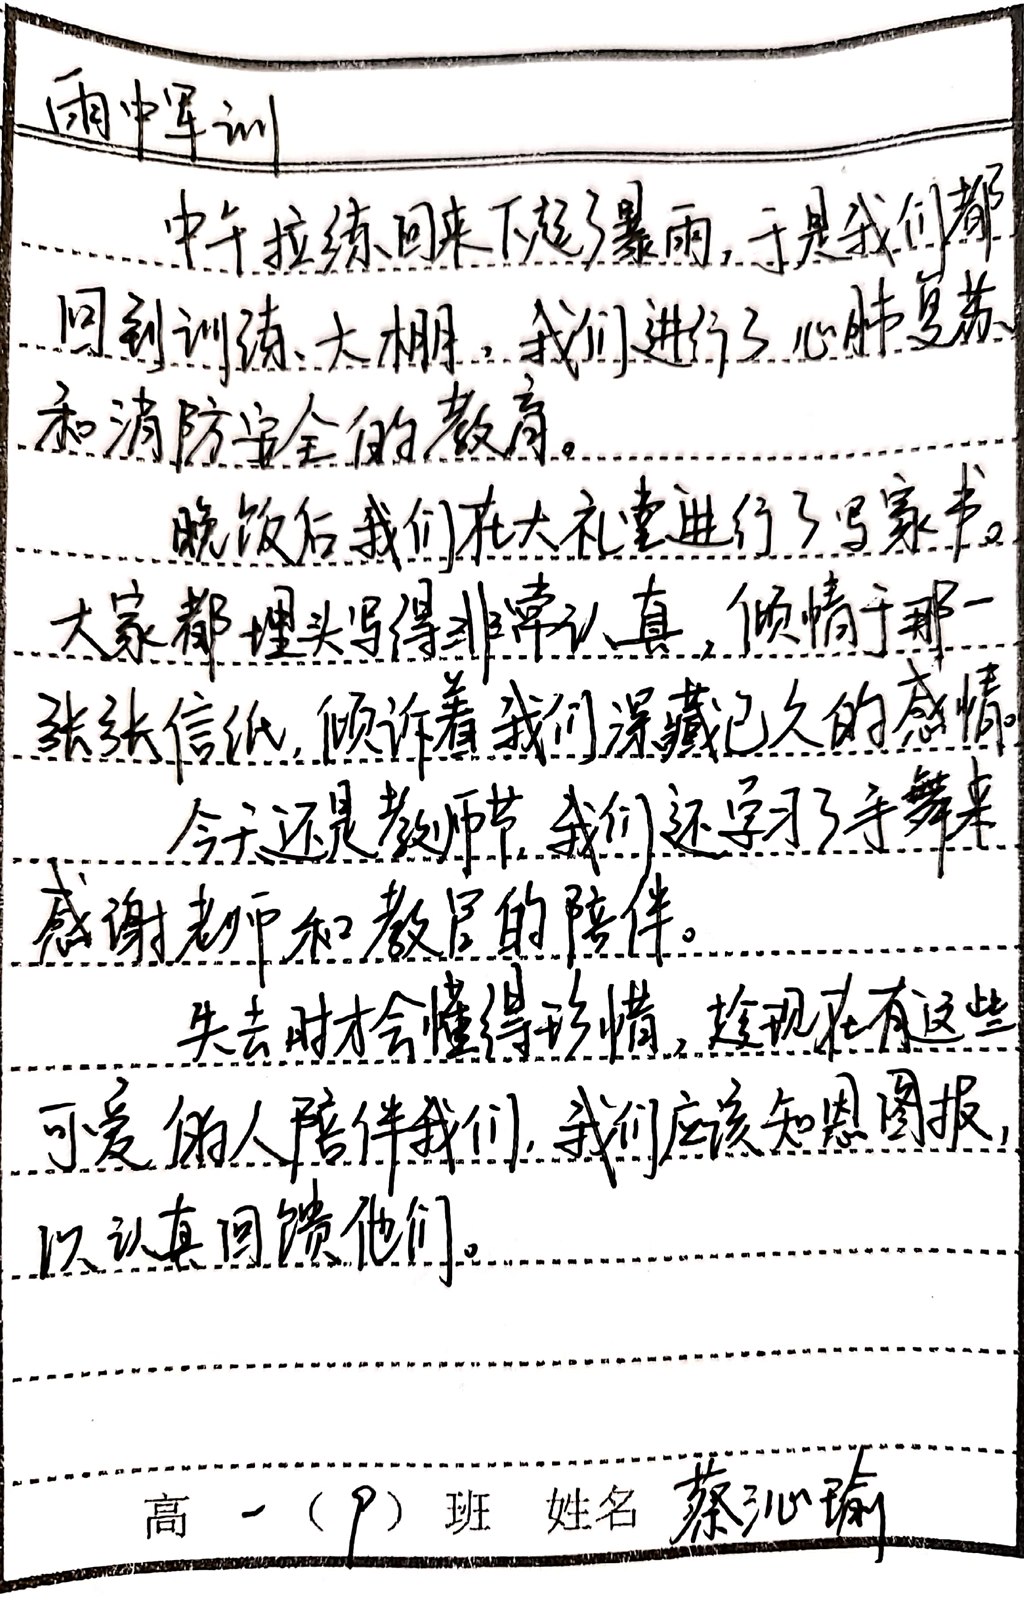 雨中军训
中午拉练回来下起了暴雨，于是我们都
回到训练大棚，我们进行了心肺复苏
和消防安全的教育。
晚饭后我们在大礼堂进行了写家书。
大家都埋头写得非常认真，倾情于那一
张张信纸，倾诉着我们深藏已久的感情。
今天还是教师节，我们还学习了手舞来
感谢老师和教官的陪伴。
失去时才会懂得珍惜，趁现在有这些
可爱的人陪伴我们，我们应该知恩图报，
以认真回馈他们。
高一（9）班 姓名 蔡沁瑜